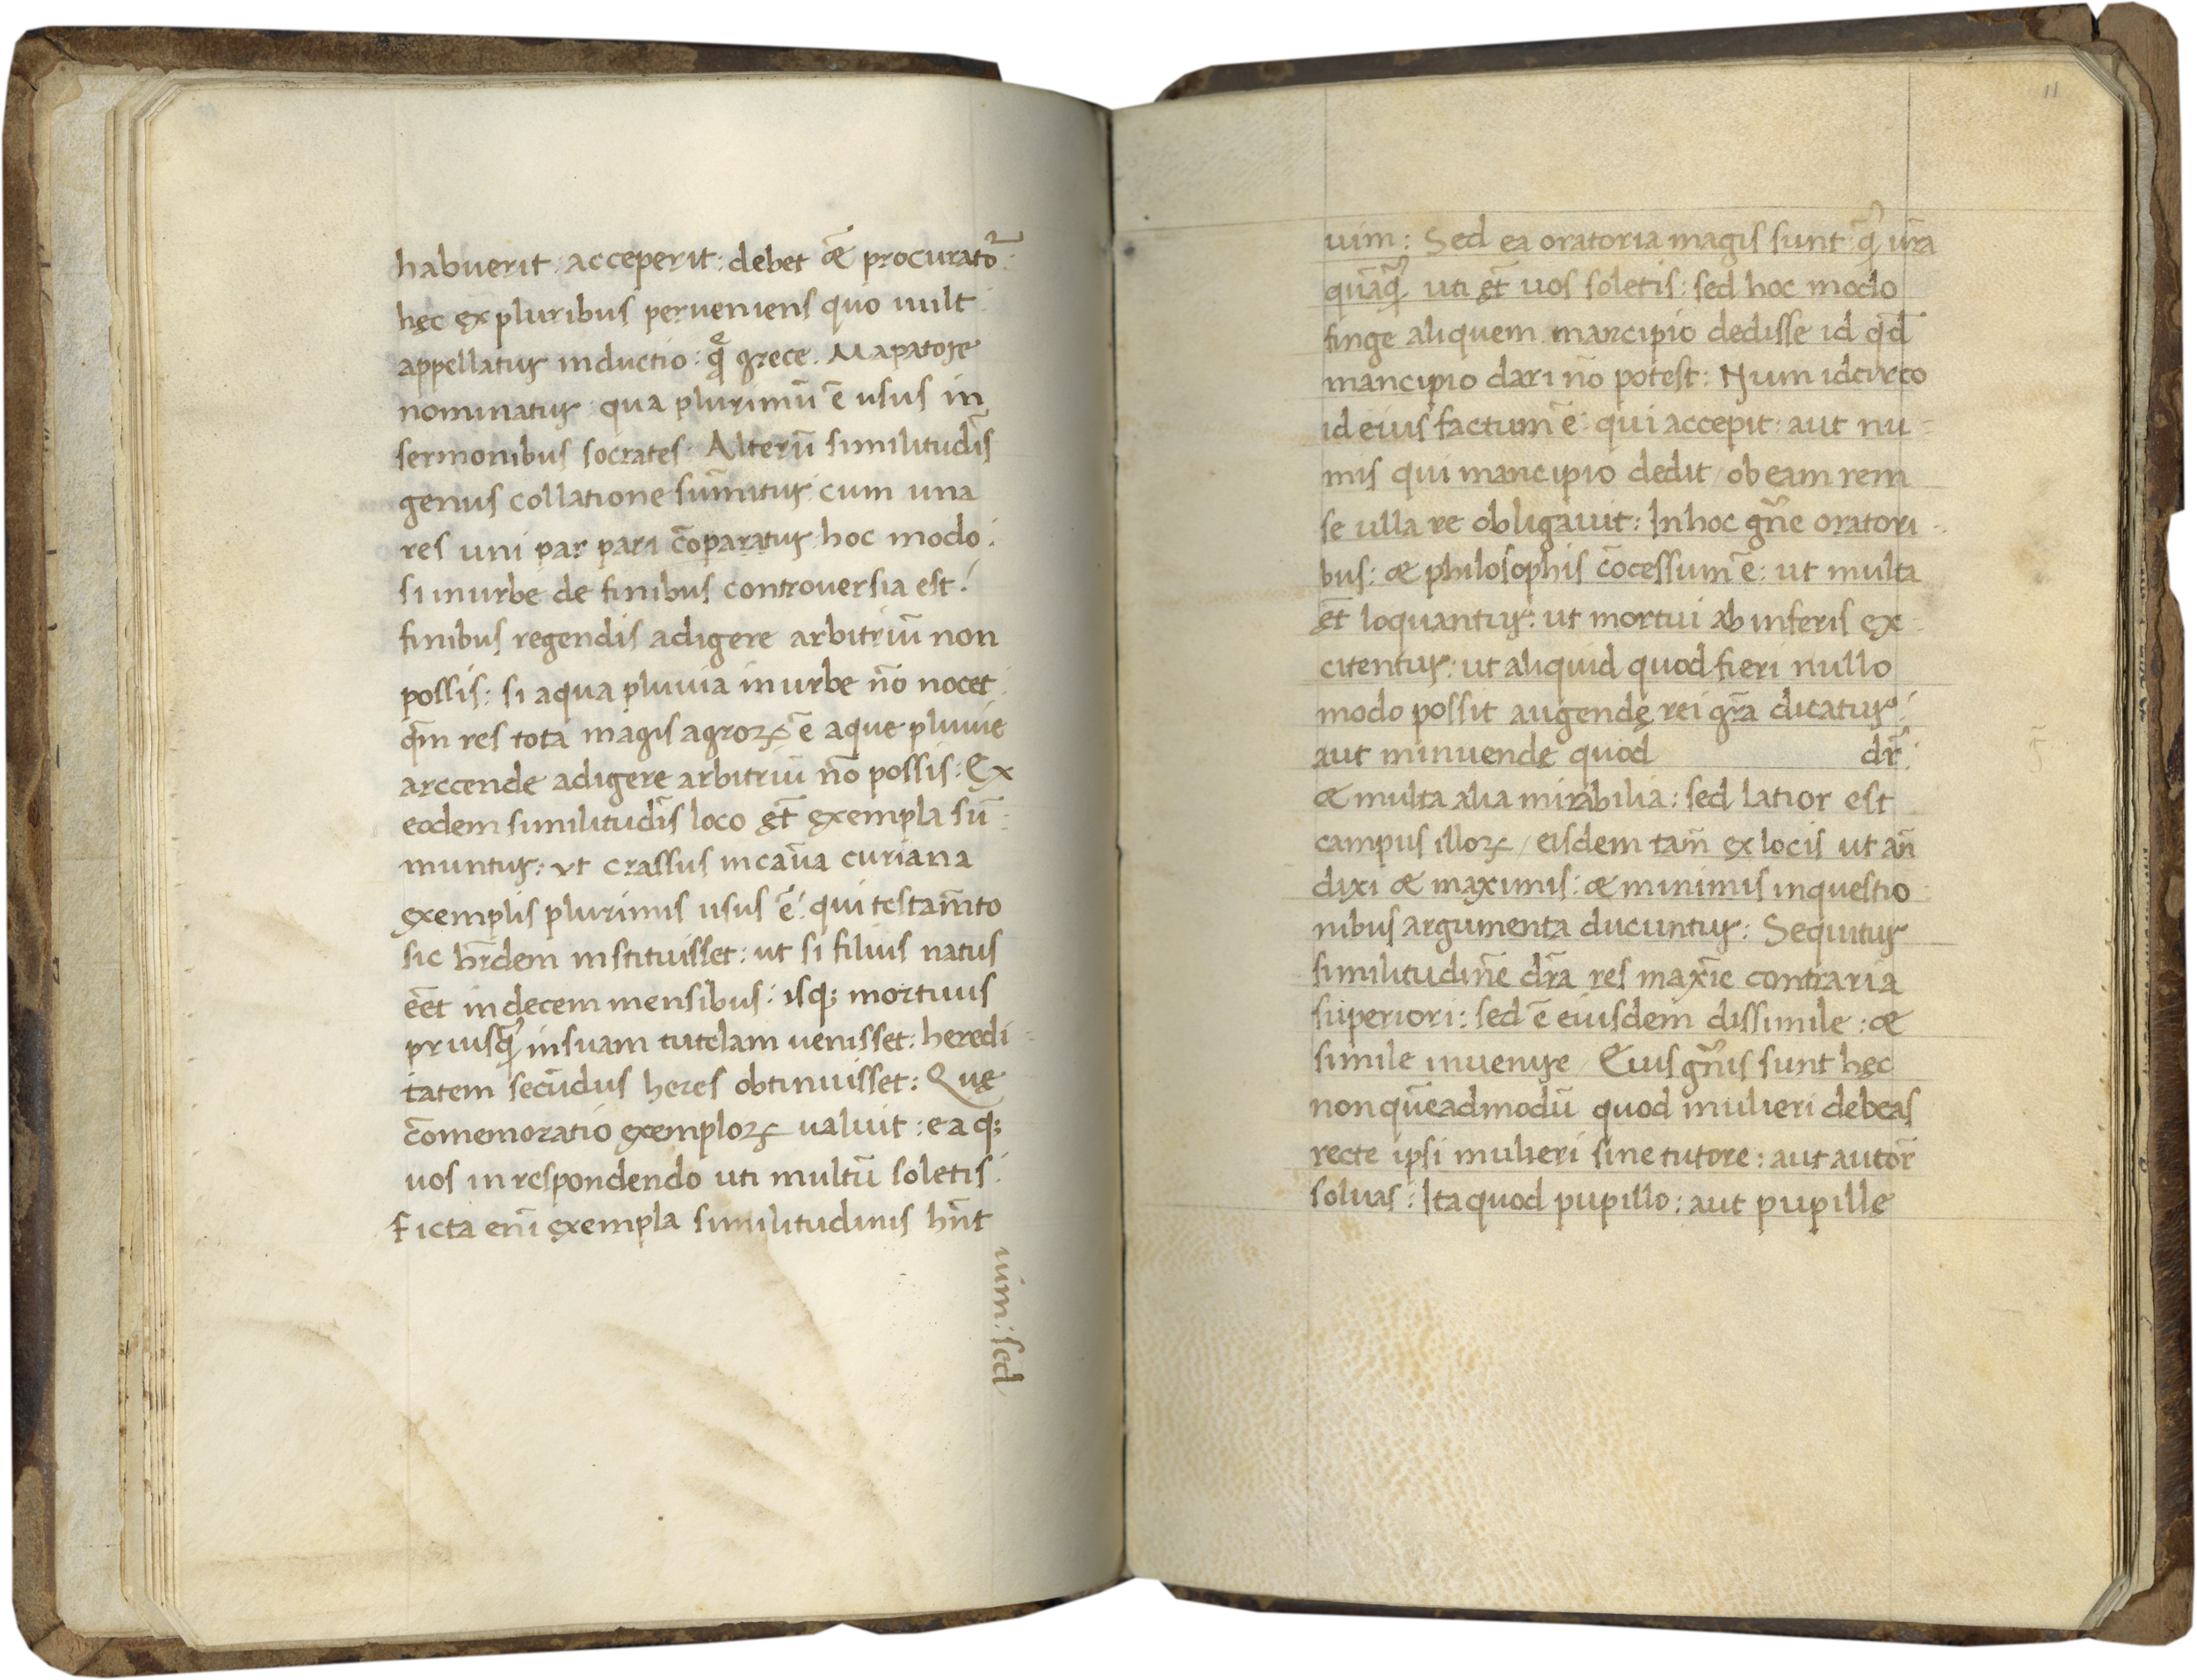 habuerit: acceperit: debet & procurator̄:
hęc ex pluribus perueniens quo uult
appellatur inductio: quę grece. Mapatore
nominatur qua plurimū ē usus in
sermonibus socrates. Alterū similitudīs
genus collatione sum̄itur cum una
res uni par pari cōparatur hoc modo:
si inurbe de finibus controuersia est:
finibus regendis adigere arbitriū non
possis: si aqua pluuia inurbe nō nocet:
qm̄ res tota magis agroꝝ ē aque pluuie
arcende adigere arbitriū nō possis: Ex
eodem similitudīs loco et̄ exempla sū
muntur: vt crassus incaūa curiana
exemplis plurimis usus ē: qui testam̄to
sic hr̄dem instituisset: ut si filius natus
eēt indecem mensibus: isqꝫ mortuus
priusqꝫ̄ insuam tutelam uenisset: heredi
tatem secūdus heres obtinuisset: Quę
cōmemoratio exemploꝝ ualuit: ea qꝫ
uos inrespondendo uti multū soletis:
Ficta eni̅ exempla similitudinis hn̄t
uim: sed
11
uim: Sed ea oratoria magis sunt qꝫ̄ ur̄a
quāqꝫ̄ uti et̄ uos soletis: sed hoc modo
finge aliquem mancipio dedisse id qd̄
mancipio dari nō potest: Num idcirco
id eius factum ē: qui accepit: aut nu
mis qui mancipio dedit / ob eam rem
se ulla re obligauit: Inhoc gn̄e oratori
bus: & philosophis cōcessum ē: ut multa
et̄ loquantur: ut mortui ab inferis ex
citentur: ut aliquid quod fieri nullo
modo possit augendę rei gr̄a dicatur:
aut minuende quod dr̄:
& multa alia mirabilia: sed latior est
campus illoꝝ / eisdem tam̄ ex locis ut an̄
dixi & maximis: & minimis inquestio
nibus argumenta ducuntur: Sequitur
similitudin̄e dr̄a res max̄ie contraria
superiori: sed ē eiusdem dissimile: &
simile inuenire / Eius gn̄is sunt hęc
non quēadmodū quod mulieri debeas
recte ipsi mulieri sine tutore: aut autor̄
soluas: Ita quod pupillo: aut pupille